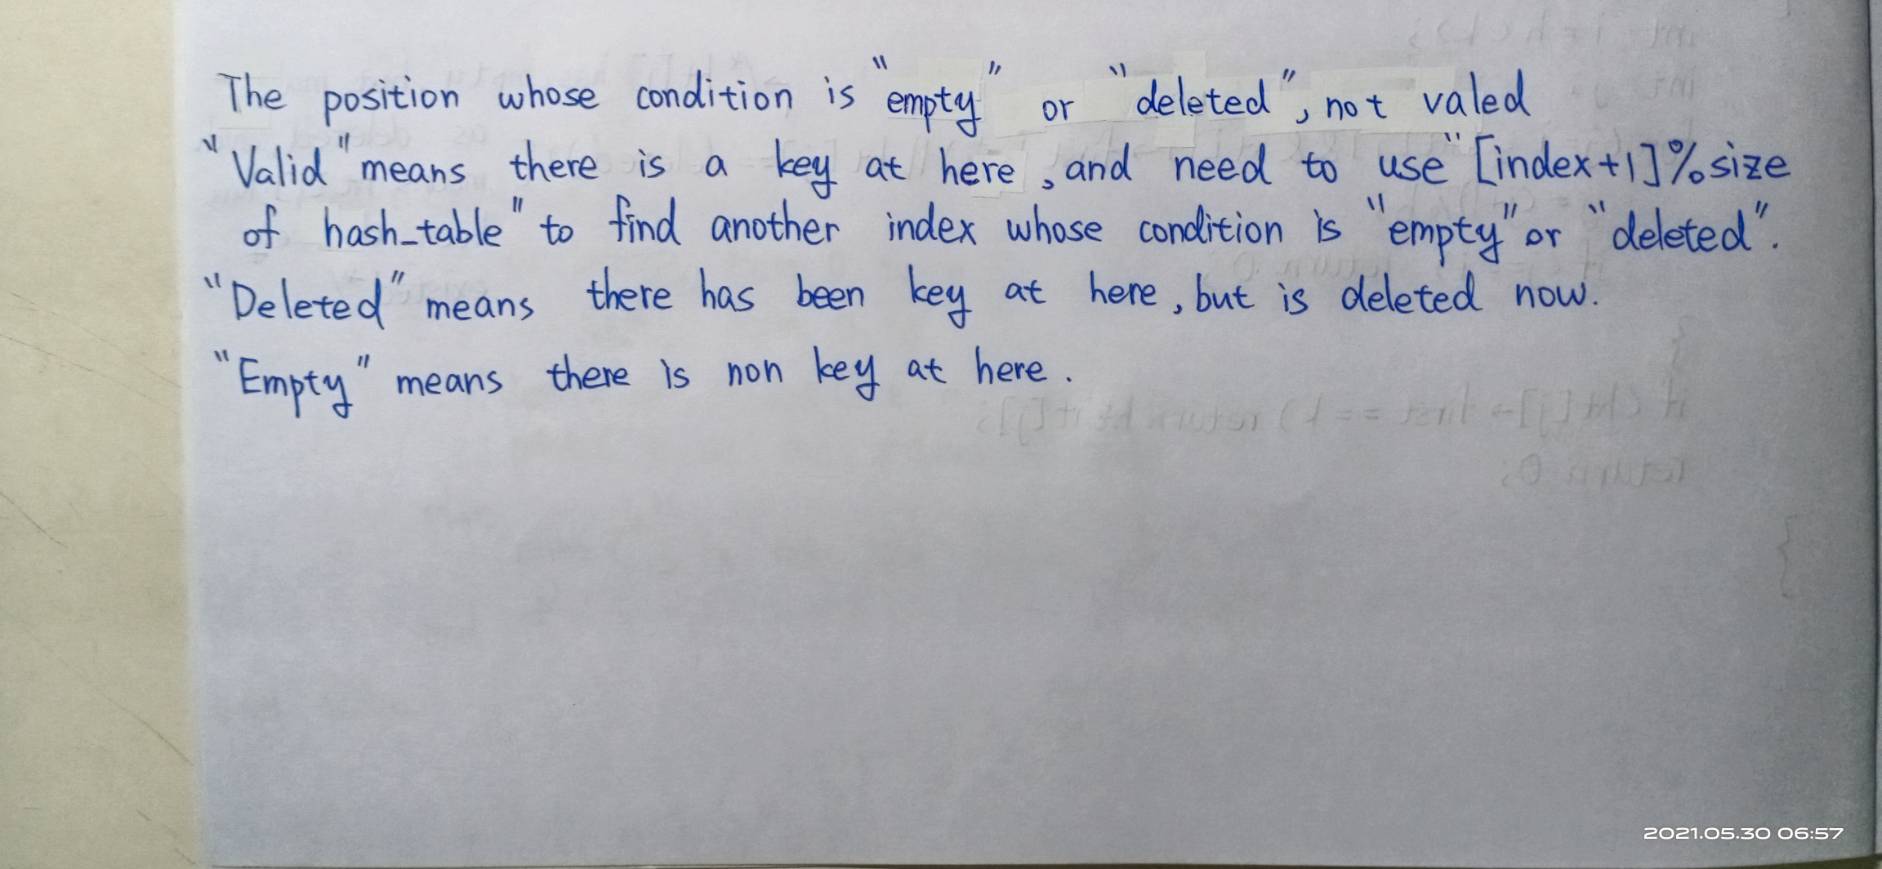 The position whose condition is "empty" or "deleted", not valed
"Valid" means there is a key at here, and need to use "[index+1]%size
of hash_table" to find another index whose condition is "empty" or "deleted".
"Deleted" means there has been key at here, but is deleted now.
"Empty" means there is non key at here.
2021.05.30 06:57